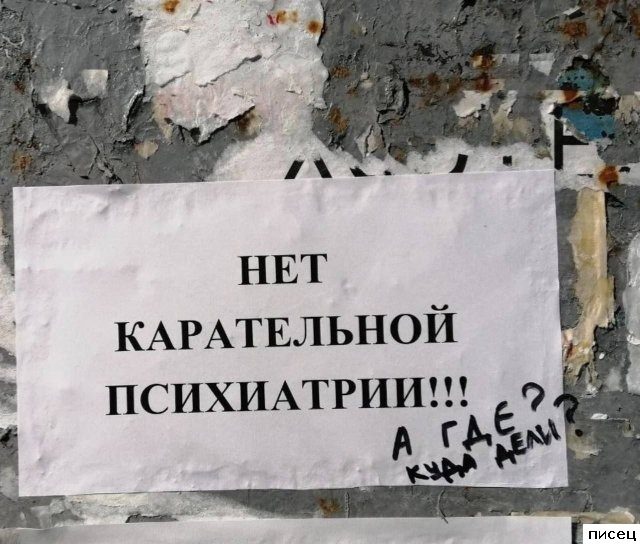 НЕТ
КАРАТЕЛЬНОЙ
ПСИХИАТРИИ!!!
А ГДЕ?
КУДА ДЕЛИ?
писец